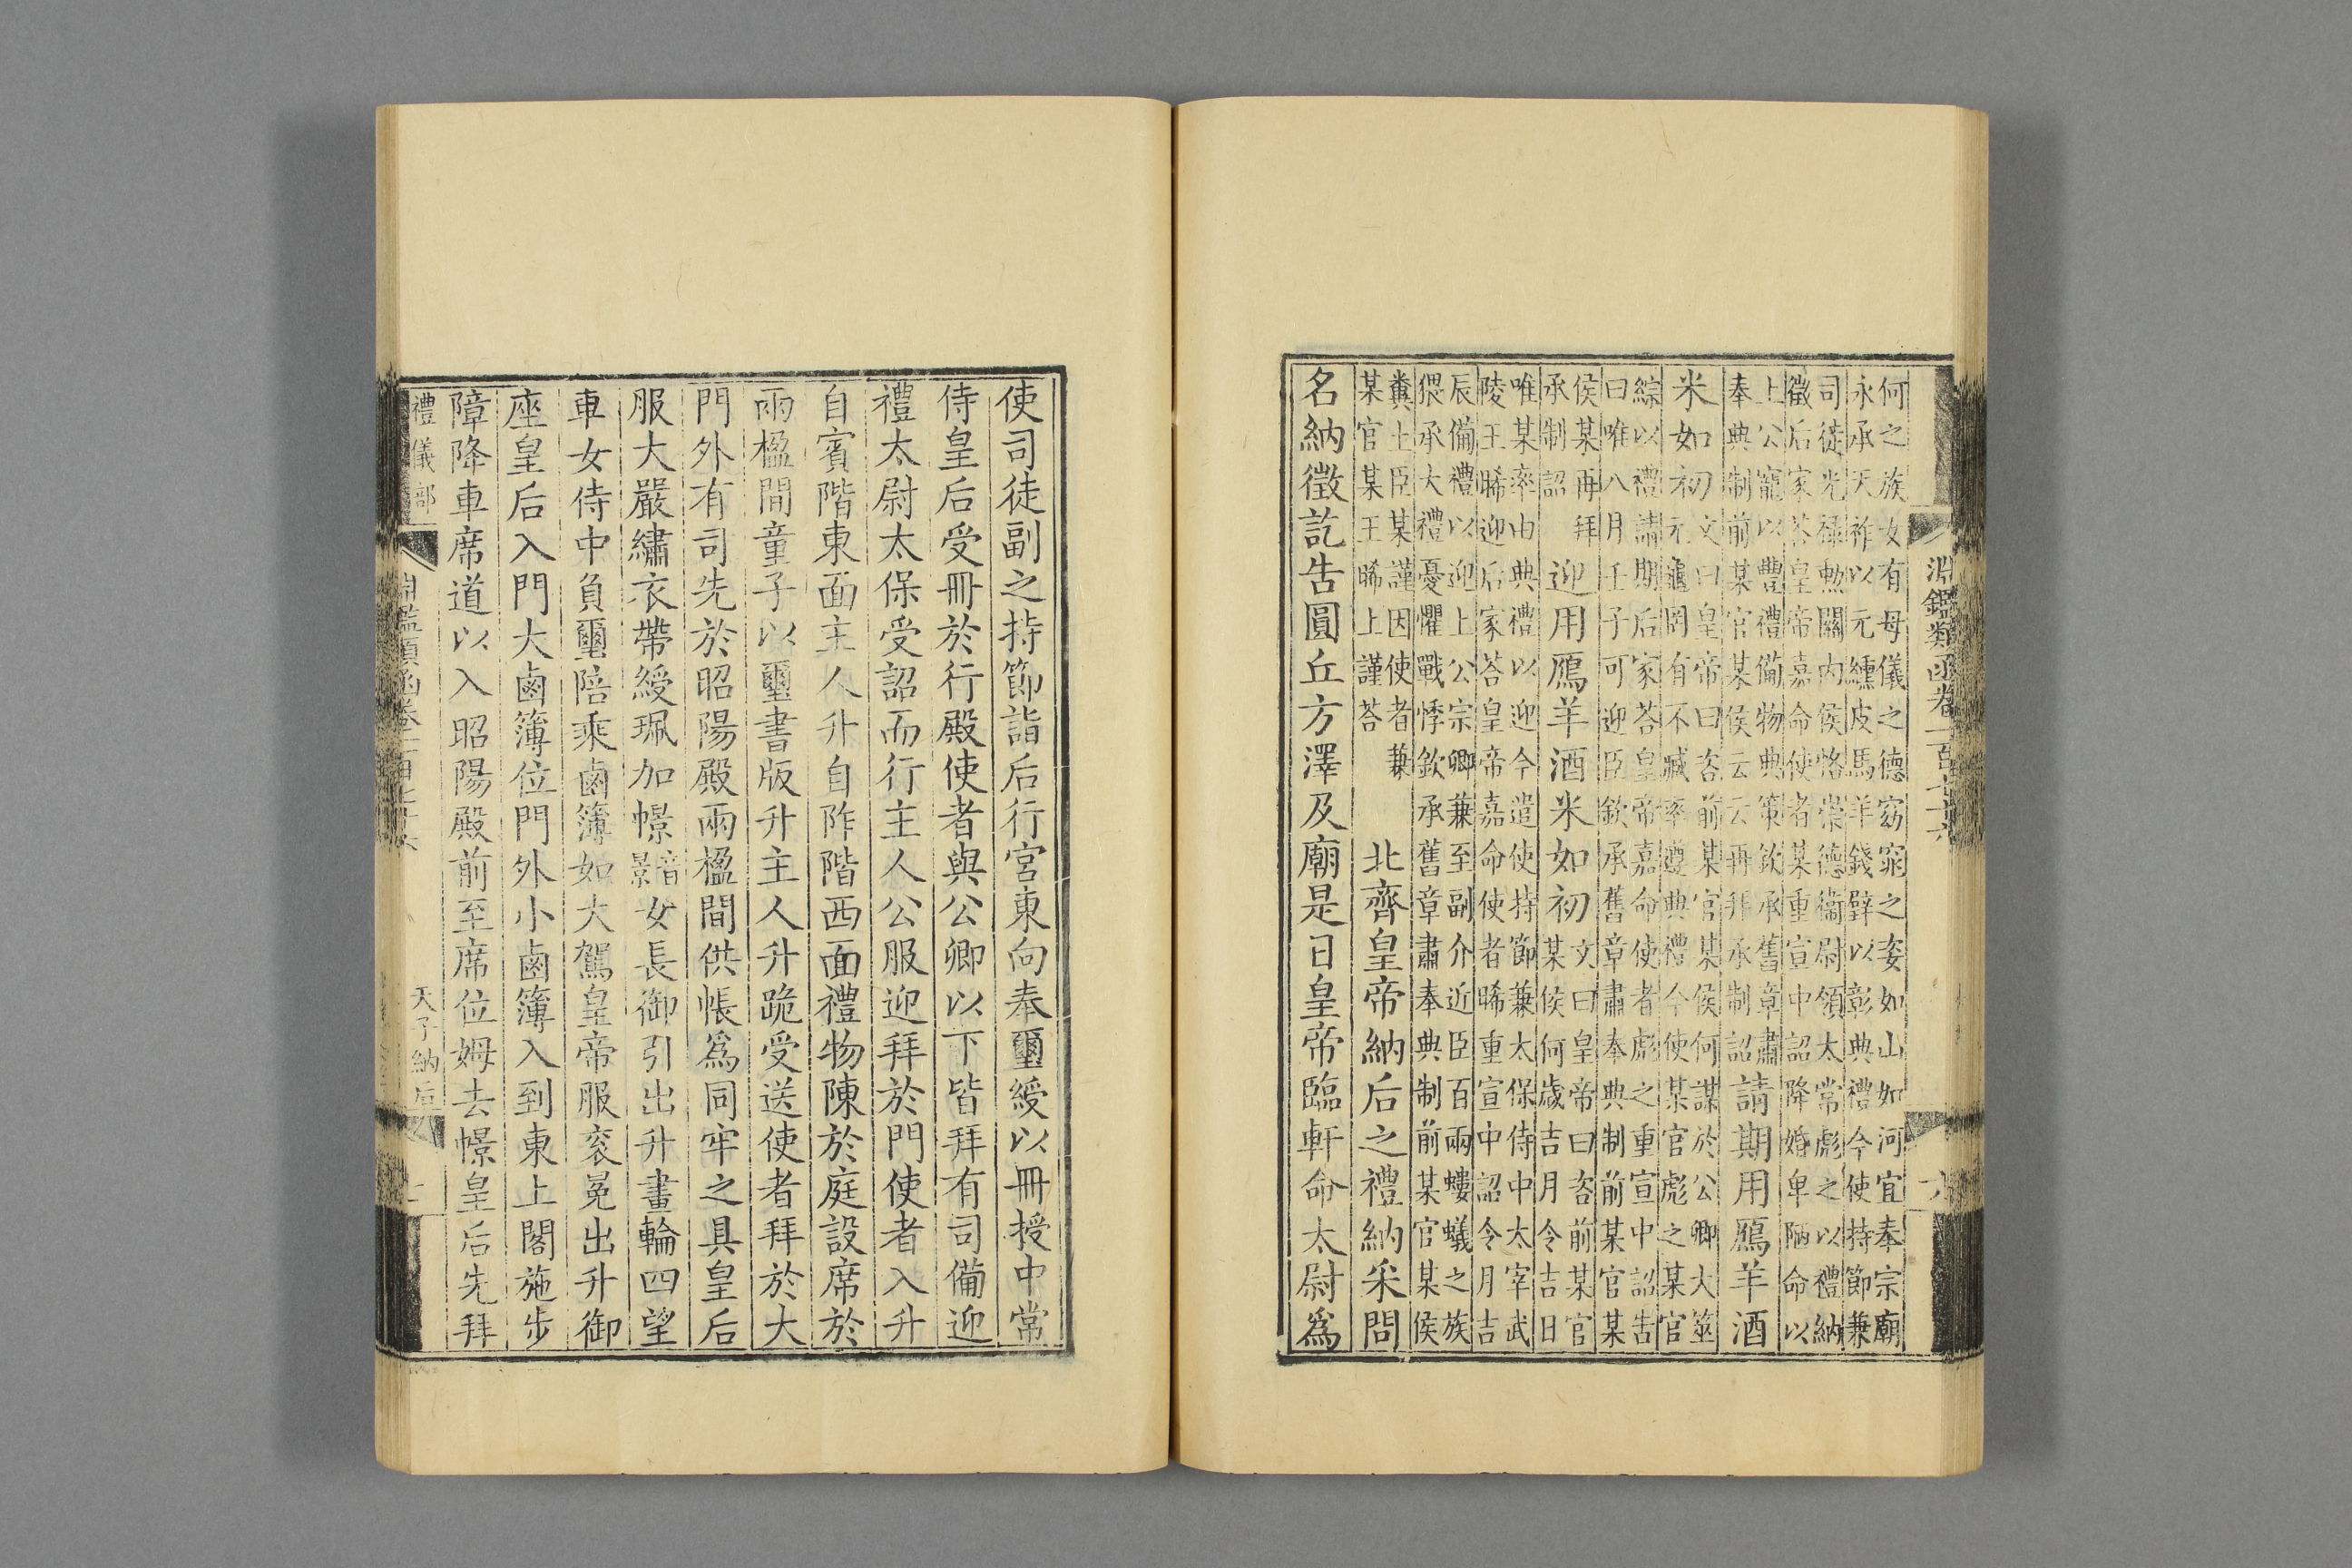 淵鑑類函卷一百七十六
何之族女有母儀之德窈窕之姿如山如河宜奉宗廟
永承天祚以元纁皮馬羊錢璧以彰典禮今使持節兼
司徒光祿勲關內侯恪崇德衞尉領太常彪之以禮納
徵后家荅皇帝嘉命使者某重宣中詔降婚卑陋命以
上公寵以豐禮備物典策欽承舊章肅
奉典制前某官某侯云云再拜承制詔
請期用鴈羊酒
米如初
文曰皇帝曰咨前某官某侯何謀於公卿大筮
元龜罔有不臧率遵典禮今使某官彪之某官
綜以禮請期后家荅皇帝嘉命使者彪之重宣中詔吿
曰唯八月壬子可迎臣欽承舊章肅奉典制前某官某
侯某再拜
承制詔
迎用鴈羊酒米如初
文曰皇帝曰咨前某官
某侯何歲吉月令吉日
唯某率由典禮以迎今遣使持節兼太保侍中太宰武
陵王晞迎后家荅皇帝嘉命使者晞重宣中詔令月吉
辰備禮以迎上公宗卿兼至副介近臣百兩螻蟻之族
猥承大禮憂懼戰悸欽承舊章肅奉典制前某官某侯
糞土臣某謹因使者兼
某官某王晞上謹荅
北齊皇帝納后之禮納采問
名納徵訖吿圓丘方澤及廟是日皇帝臨軒命太尉爲
使司徒副之持節詣后行宮東向奉璽綬以冊授中常
侍皇后受冊於行殿使者與公卿以下皆拜有司備迎
禮太尉太保受詔而行主人公服迎拜於門使者入升
自賓階東面主人升自阼階西面禮物陳於庭設席於
兩楹間童子以璽書版升主人升跪受送使者拜於大
門外有司先於昭陽殿兩楹間供帳爲同牢之具皇后
服大嚴繡衣帶綬珮加幜音景女長御引出升畫輪四望
車女侍中負璽陪乘鹵簿如大駕皇帝服衮冕出升御
座皇后入門大鹵簿位門外小鹵簿入到東上閤施步
障降車席道以入昭陽殿前至席位姆去幜皇后先拜
禮儀部
淵鑑類函卷一百七十六
天子納后